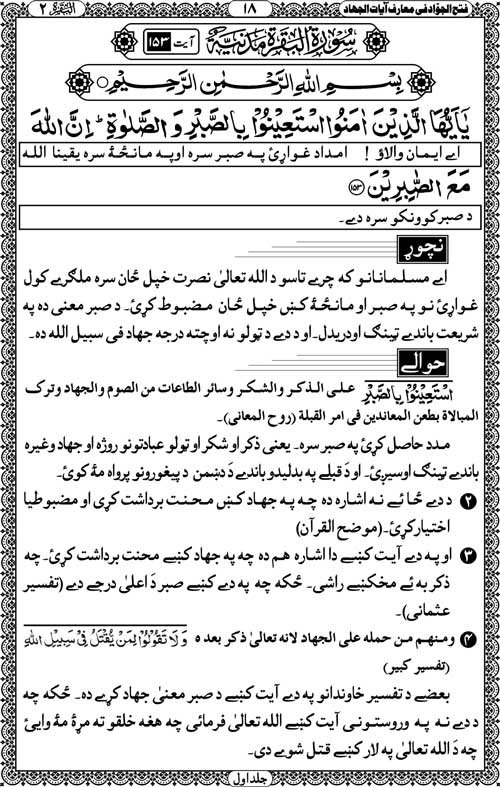 فتح الجوّاد فی معارف آیات الجهاد ۱۸ البقرة ۲
سُوْرَةُ الْبَقَرَةِ مَدَنِيَّة آیت ۱۵۳
بِسْمِ اللهِ الرَّحْمٰنِ الرَّحِيْمِ
يٰاَيُّهَا الَّذِيْنَ اٰمَنُوا اسْتَعِيْنُوْا بِالصَّبْرِ وَالصَّلٰوةِ ؕ اِنَّ اللهَ
اے ایمان والاؤ ! امداد غواړئ په صبر سره او په مانځۀ سره یقینا الله
مَعَ الصّٰبِرِيْنَ ﴿۱۵۳﴾
د صبر کوونکو سره دے۔
نچوړ
اے مسلمانانو که چرے تاسو د الله تعالیٰ نصرت خپل ځان سره ملګرے کول
غواړئ نو په صبر او مانځۀ کښ خپل ځان مضبوط کړئ۔ د صبر معنی ده په
شریعت باندے ټینګ اودریدل۔ او د دے د ټولو نه اوچته درجه جهاد فی سبیل الله ده۔
حوالے
اسْتَعِيْنُوْا بِالصَّبْرِ علی الذکر والشکر وسائر الطاعات من الصوم والجهاد وترک
المبالاة بطعن المعاندین فی امر القبلة (روح المعانی)۔
مدد حاصل کړئ په صبر سره۔ یعنی ذکر او شکر او ټولو عبادتونو روژه او جهاد وغیره
باندے ټینګ اوسیږئ۔ او دَ قبلے په بدلیدو باندے دَ دښمن د پیغورونو پرواه مۀ کوئ۔
۲ د دے ځائے نه اشاره ده چه په جهاد کښ محنت برداشت کړی او مضبوطیا
اختیار کړئ۔ (موضح القرآن)
۳ او په دے آیت کښے دا اشاره هم ده چه په جهاد کښے محنت برداشت کړئ۔ چه
ذکر به ئے مخکښے راشی۔ ځکه چه په دے کښے صبر دَ اعلیٰ درجے دے (تفسیر
عثمانی)۔
۴ ومنهم من حمله علی الجهاد لانه تعالیٰ ذکر بعد ه وَلَا تَقُوْلُوْا لِمَنْ يُّقْتَلُ فِيْ سَبِيْلِ اللهِ
(تفسیر کبیر)
بعضے د تفسیر خاوندانو په دے آیت کښے د صبر معنیٰ جهاد کړے ده۔ ځکه چه
د دے نه په وروستونی آیت کښے الله تعالیٰ فرمائی چه هغه خلقو ته مړۀ مۀ وایئ
چه دَ الله تعالیٰ په لار کښے قتل شوے دی۔
جلد اول